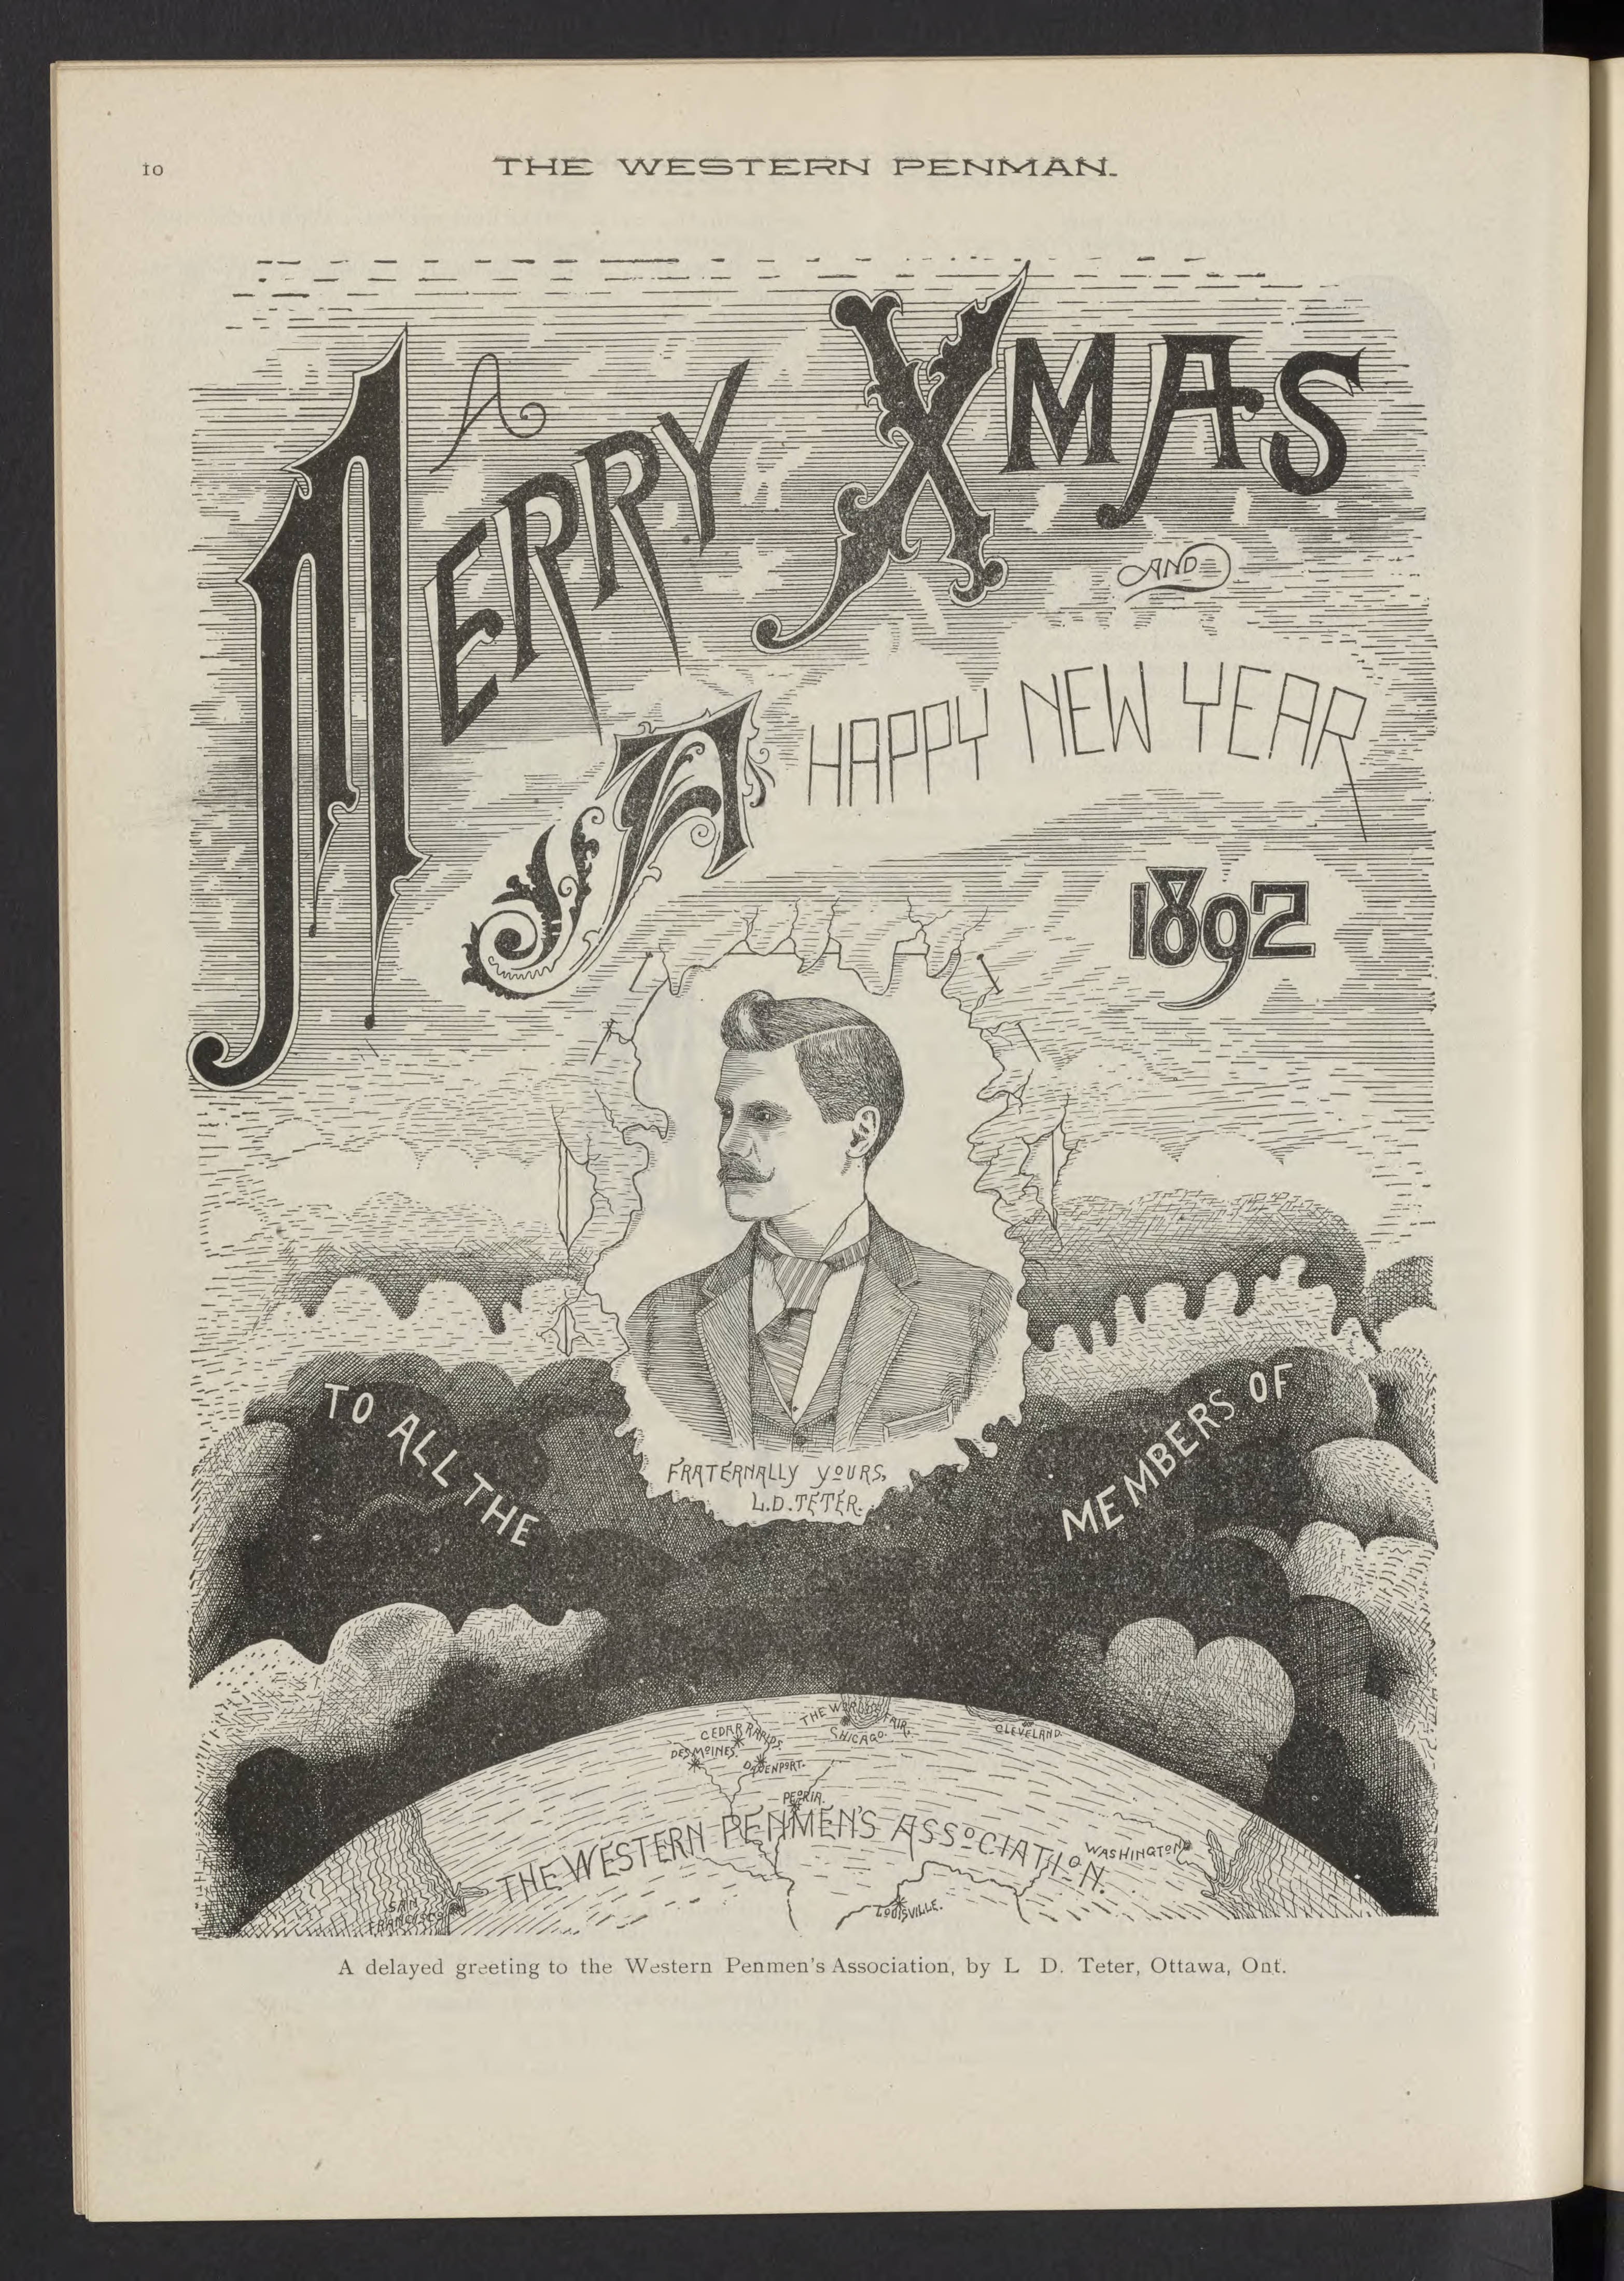 10
THE WESTERN PENMAN.
A
MERRY XMAS
AND
A HAPPY NEW YEAR
1892
FRATERNALLY YOURS,
L.D. TETER.
TO ALL THE
MEMBERS OF
THE WORLDS FAIR.
CHICAGO.
CLEVELAND.
CEDAR RAPIDS.
DES MOINES.
DAVENPORT.
PEORIA.
THE WESTERN PENMEN'S ASSOCIATION.
WASHINGTON
SAN
FRANCISCO
LOUISVILLE.
A delayed greeting to the Western Penmen's Association, by L D. Teter, Ottawa, Ont.